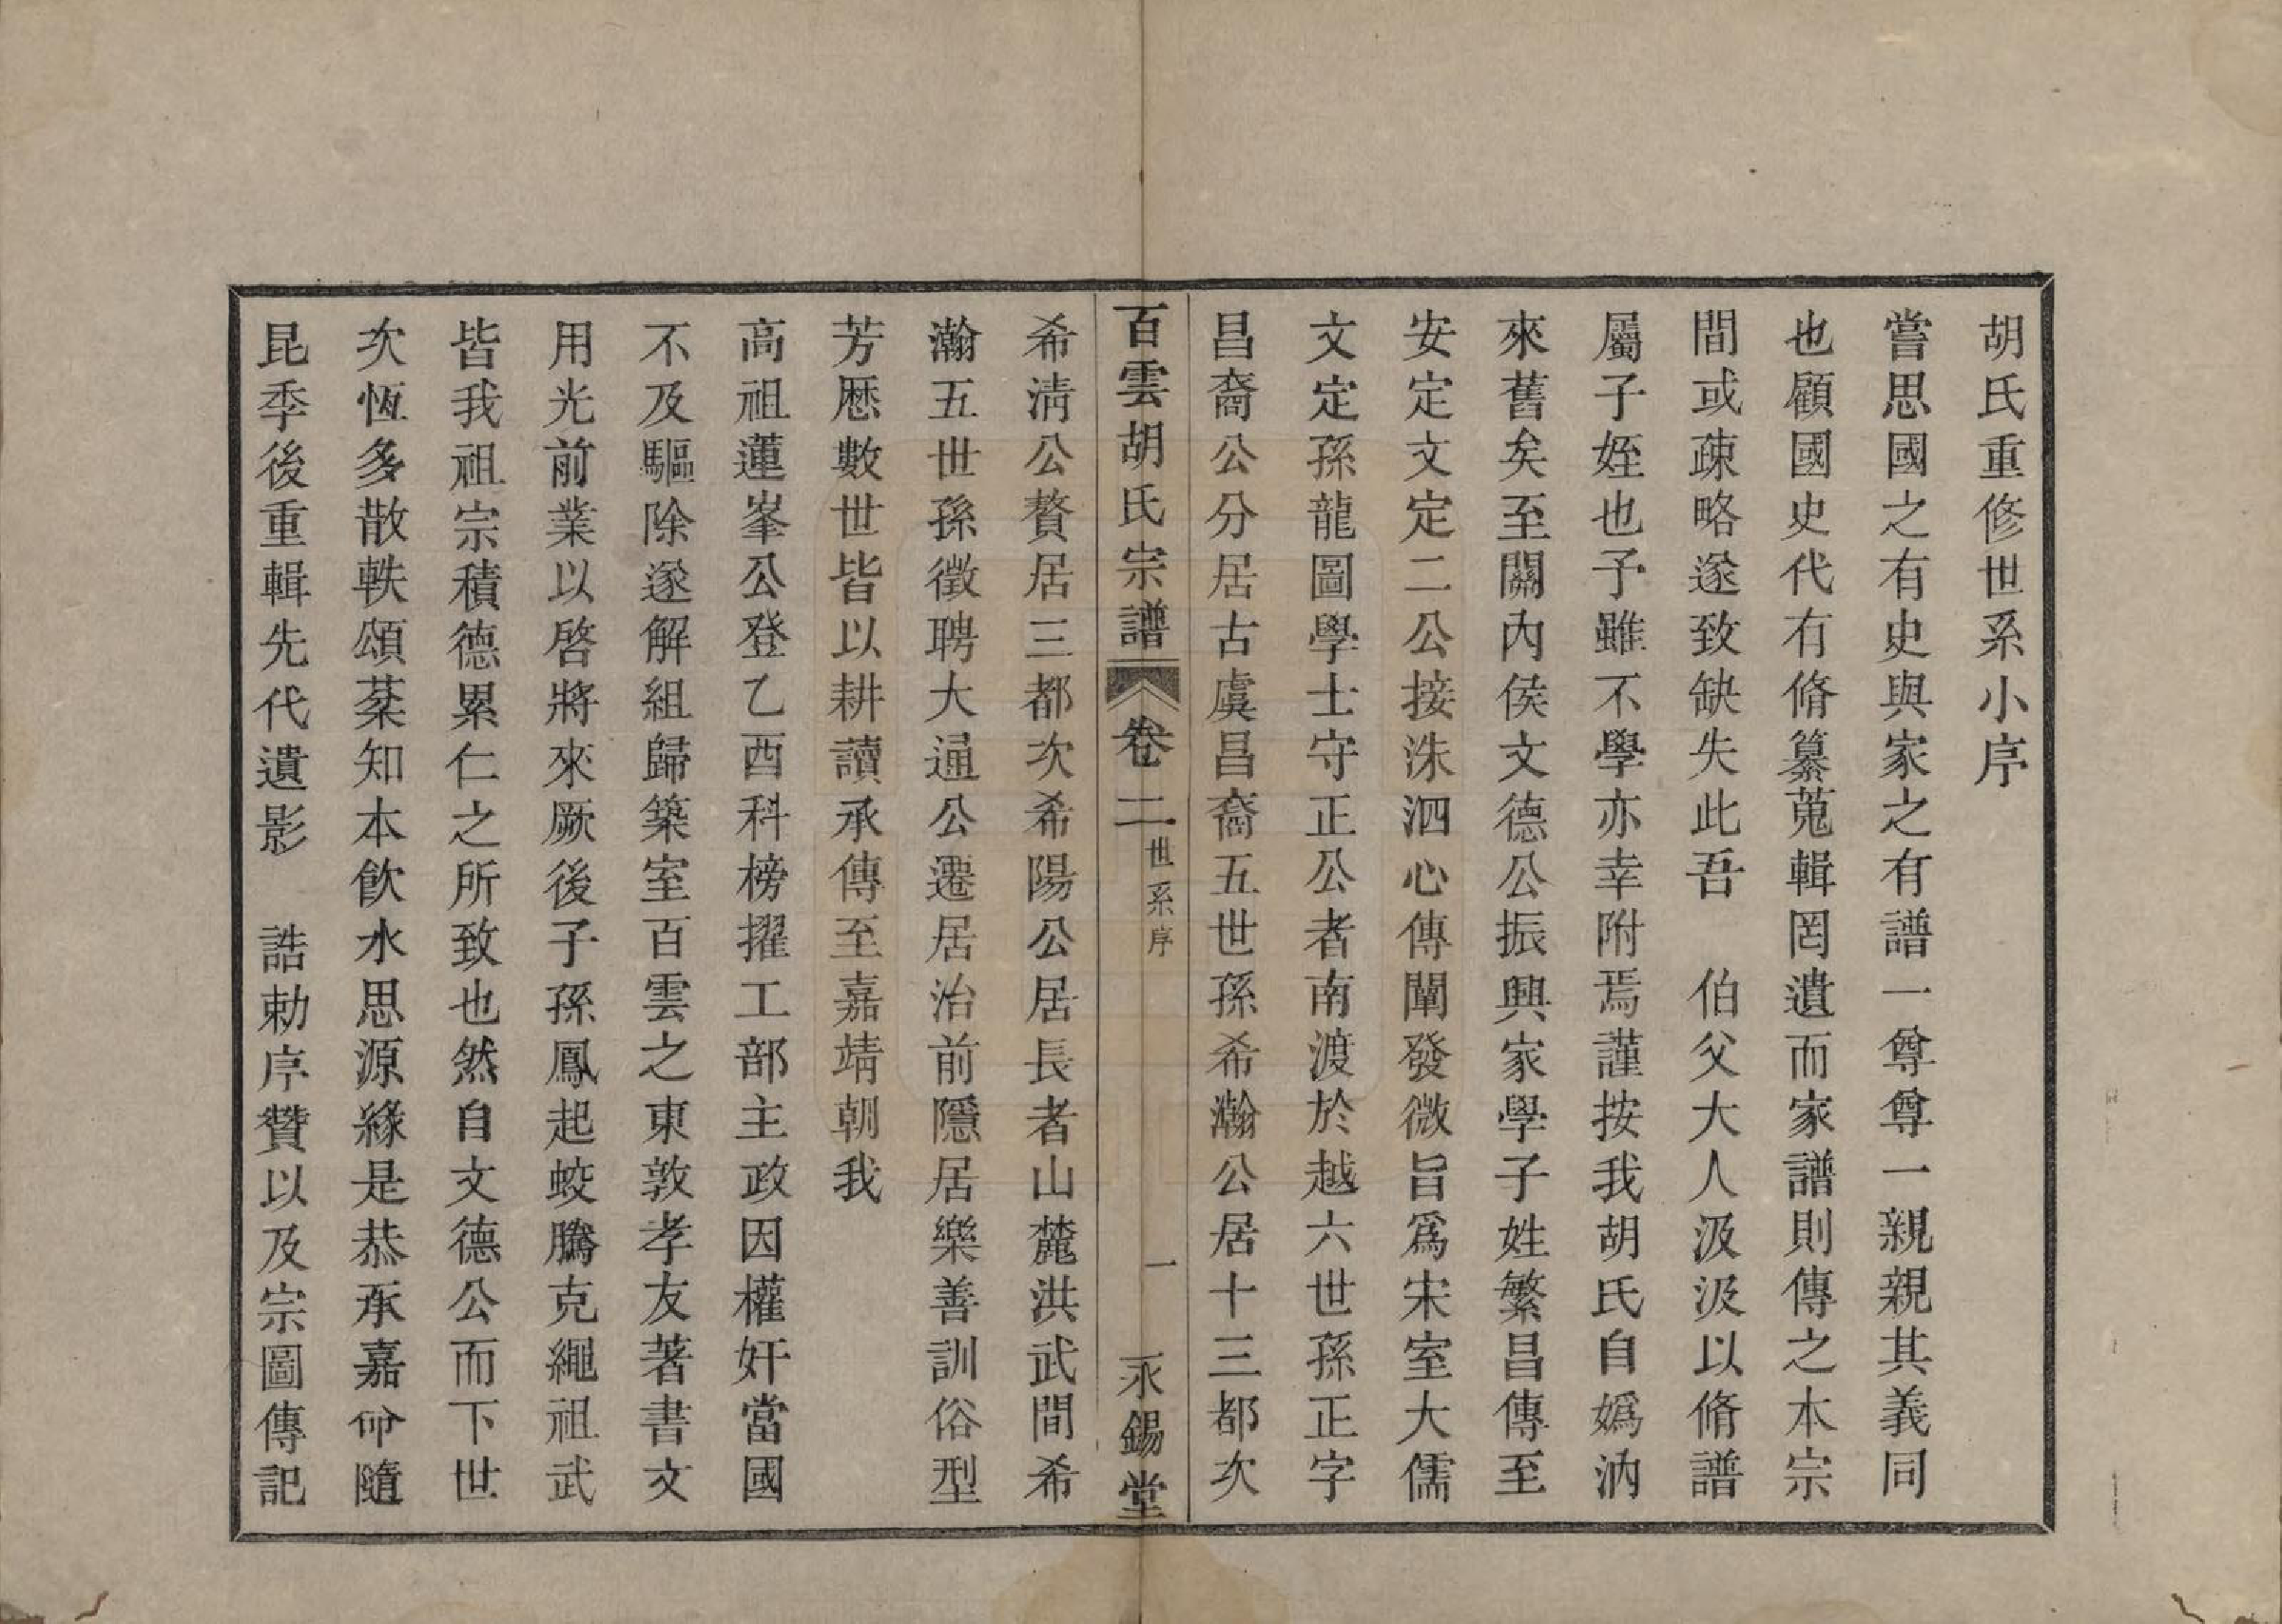 胡氏重修世系小序
嘗思國之有史與家之有譜一尊尊一親親其義同
也顧國史代有脩纂蒐輯罔遺而家譜則傳之本宗
間或疎略遂致缺失此吾　伯父大人汲汲以脩譜
屬子姪也予雖不學亦幸附焉謹按我胡氏自嬀汭
來舊矣至關內侯文德公振興家學子姓繁昌傳至
安定文定二公接洙泗心傳闡發微旨爲宋室大儒
文定孫龍圖學士守正公者南渡於越六世孫正字
昌裔公分居古虞昌裔五世孫希瀚公居十三都次
百雲胡氏宗譜　卷二　世系序　一　永錫堂
希淸公贅居三都次希陽公居長者山麓洪武間希
瀚五世孫徵聘大通公遷居治前隱居樂善訓俗型
芳厯數世皆以耕讀承傳至嘉靖朝我
高祖蓮峯公登乙酉科榜擢工部主政因權奸當國
不及驅除遂解組歸築室百雲之東敦孝友著書文
用光前業以啓將來厥後子孫鳳起蛟騰克繩祖武
皆我祖宗積德累仁之所致也然自文德公而下世
次恆多散軼頌棻知本飮水思源緣是恭承嘉命隨
昆季後重輯先代遺影　誥勅序贊以及宗圖傳記